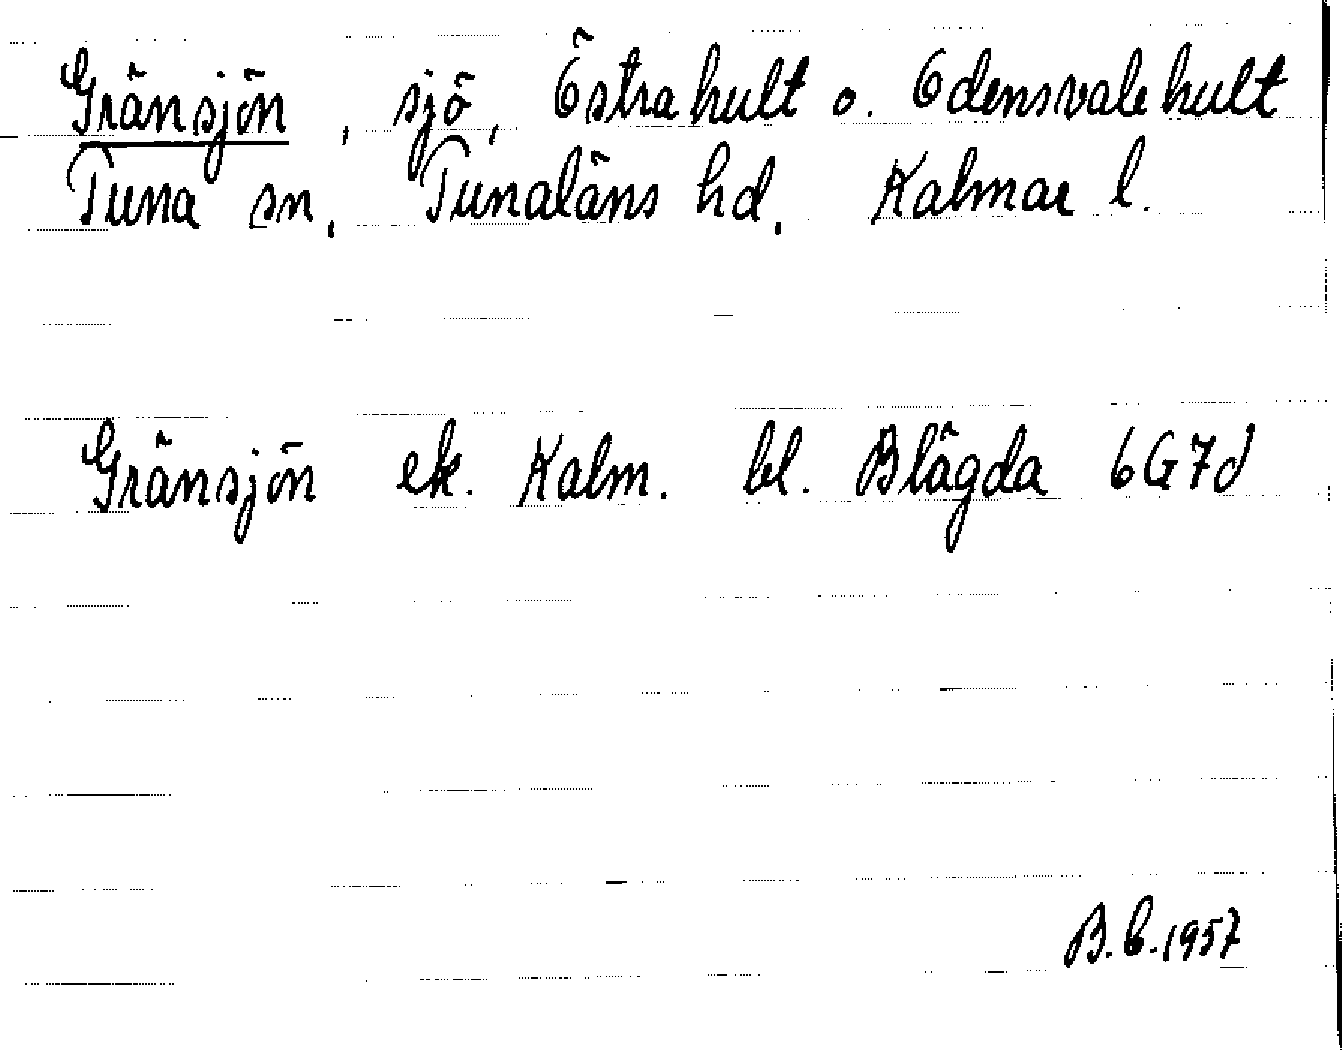 Gränsjön, sjö, Östrahult o. Odensvalehult
Tuna sn, Tunaläns hd, Kalmar l.
Gränsjön ek. Kalm. bl. Blågda 6G7d
B.C. 1957